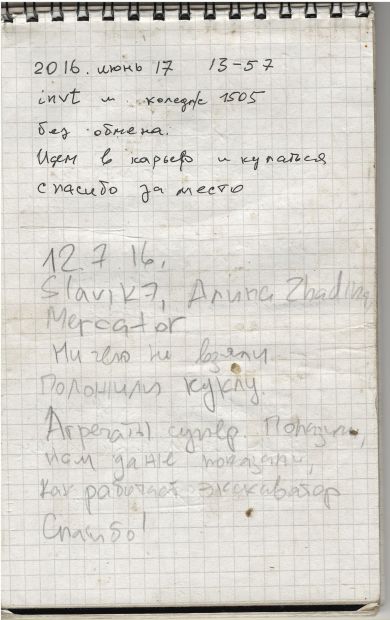 2016. июнь 17 13-57
invt и колеdжс 1505
без обмена.
Идем в карьер и купаться
спасибо за место
12.7.16.
Slavik7, Arina Zhading
Mercator
Ничего не взяли
Положили куклу.
Агрегаты супер.
нам даже показали,
как работает экскаватор
Спасибо!